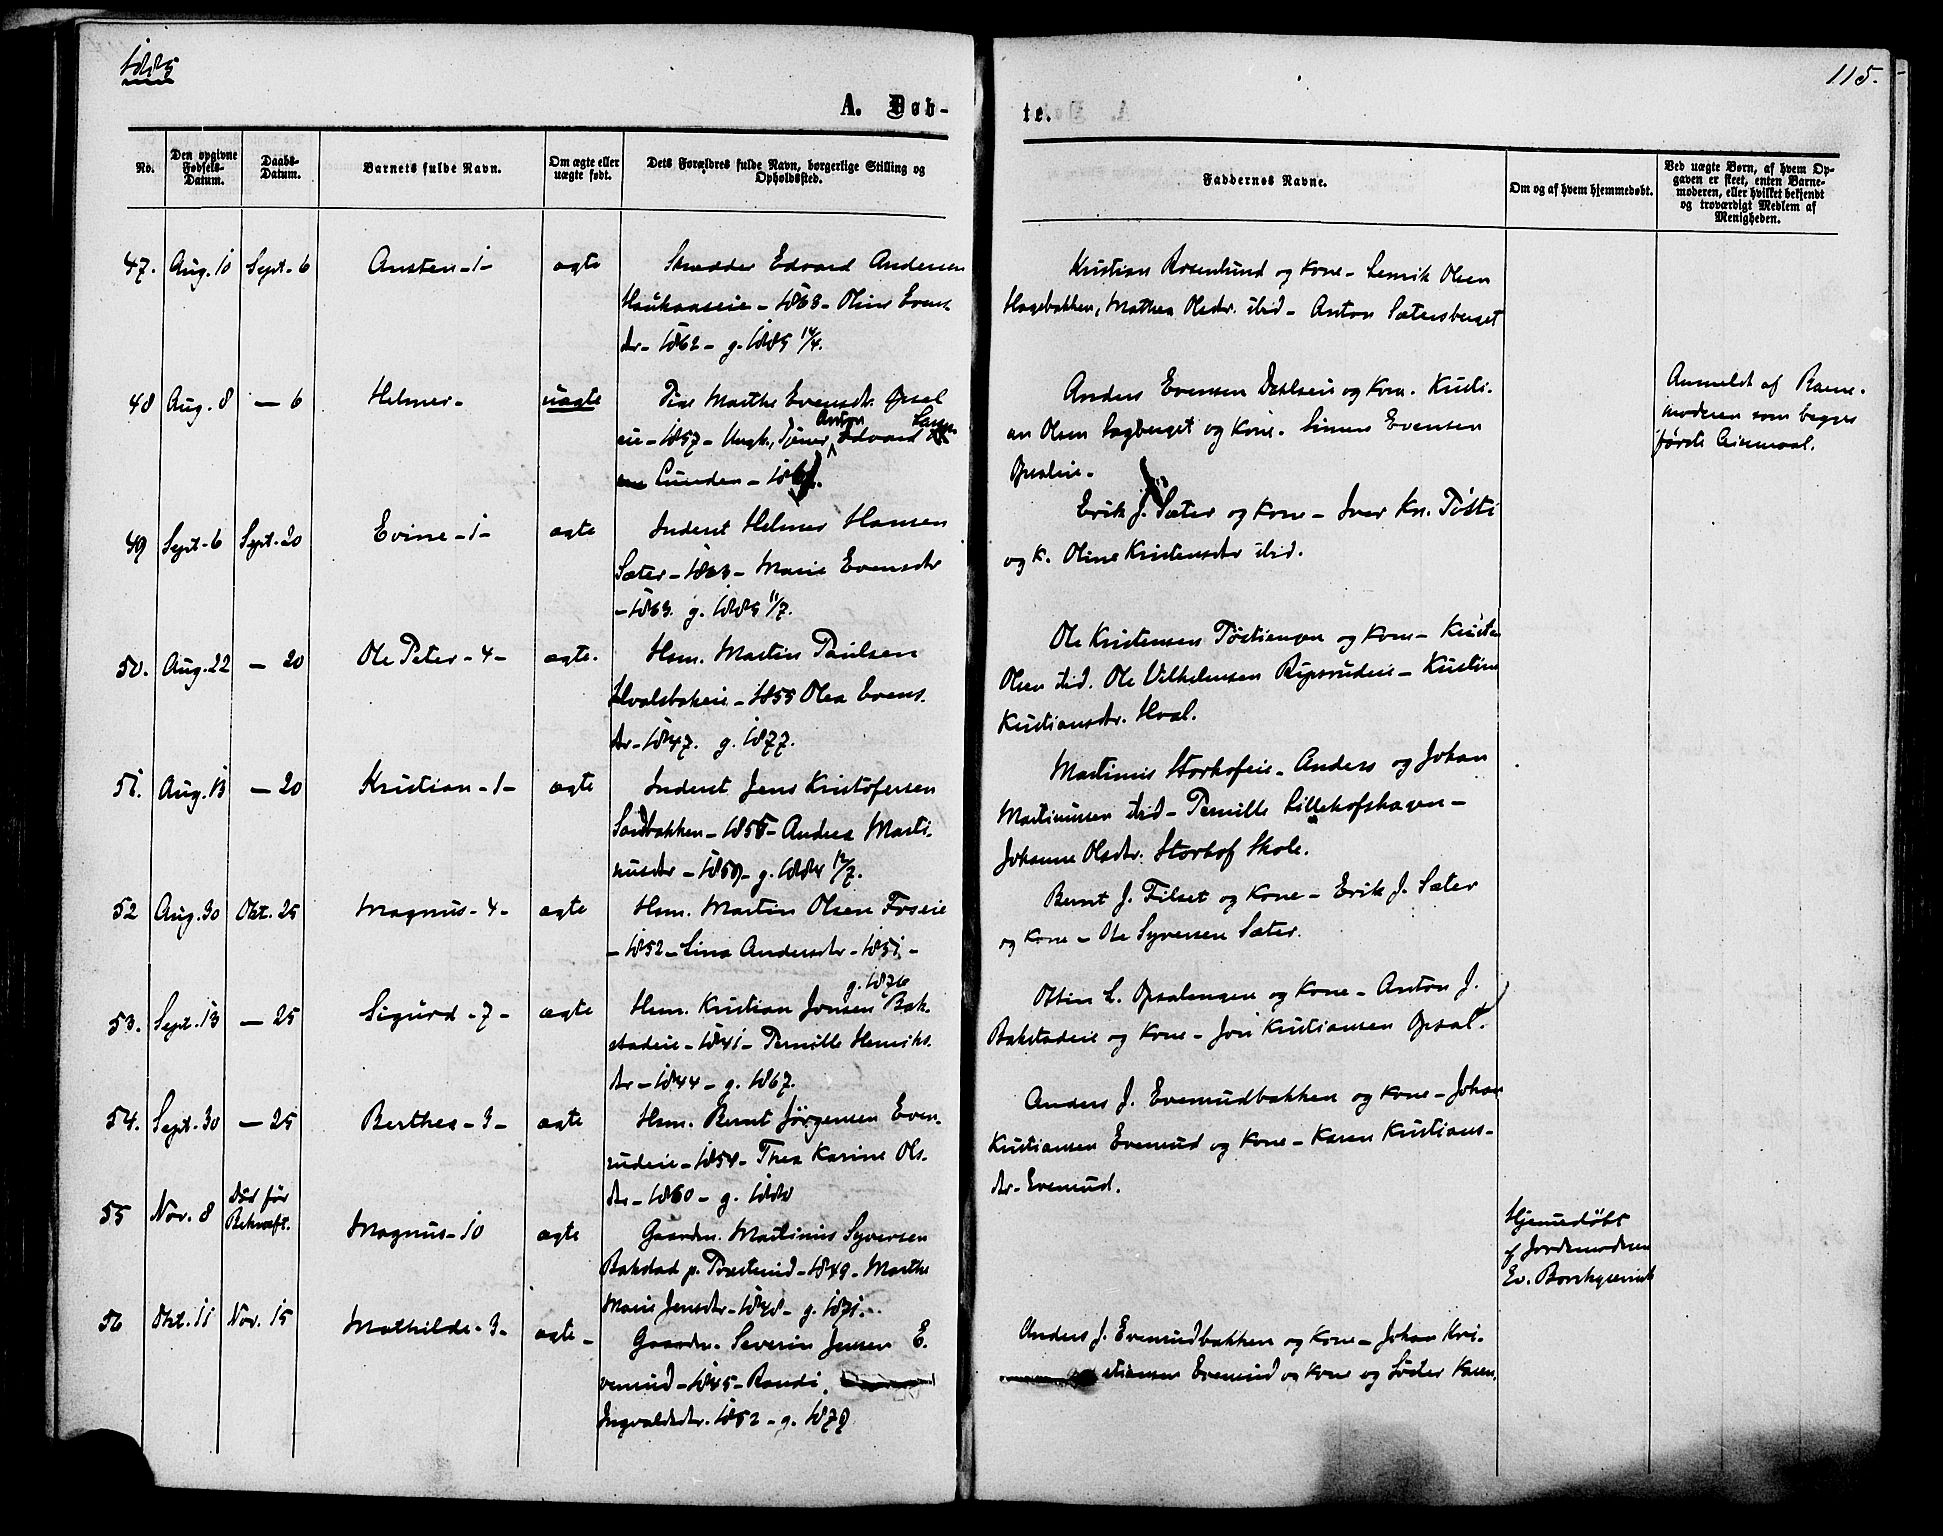 1885
115.
A. Døb-
te.
No.
Den opgivne Fødsels-Datum.
Daabs-Datum.
Barnets fulde Navn.
Om ægte eller uægte født.
Dets Forældres fulde Navn, borgerlige Stilling og Opholdssted.
Faddernes Navne.
Om og af hvem hjemmedøbt.
Ved uægte Børn, af hvem Opgaven er skeet, enten Barnemoderen, eller hvilket bekjendt og troværdigt Medlem af Menigheden.
47. Aug. 10 Sept. 6 Austen - 1 - ægte
Skrædder Edvard Andersen
Haukaaseie - 1863 - Oline Evens-
dr - 1862 - g. 1885 14/4.
Kristian Rosenlund og Kone - Henrik Olsen
Hagebakken, Mathea Olsdr. ibid - Anton Sætersberget
48 Aug. 8 — 6 Helmer - uægte
Pige Marthe Evensdr. Opsal
eie - 1857 - Ungk., Tjener Anton Edvard
Lunden - 186
Anders Evensen Dahlseie og Kone. Kristi-
an Olsen Hagberget og Kone. Simen Evensen
Opsaleie.
Anmeldt af Barne-
moderen som begges
første Leiermaal.
49 Sept. 6 Sept. 20 Evine - 1 - ægte
Inderst Helmer Hansen
Sæter - 1863 - Marie Evensdr
- 1863. g. 1885 11/7.
Erik J. Sæter og Kone - Iver Kr. Tösti
og K. Oline Kristensdr ibid.
50. Aug. 22 — 20 Ole Peter - 4 - ægte.
Hsm. Martin Paulsen
Hvalsbakeie - 1855 Olea Evens.
dr - 1847. g. 1877.
Ole Kristensen Töstiengen og Kone - Kristen
Olsen ibid. Ole Vilhelmsen Ripsrudeie - Kristine
Kristiansdr. Hval.
51. Aug. 13 — 20 Kristian - 1 - ægte
Inderst Jens Kristofersen
Sandbakken - 1855 - Andrea Marti-
nusdr - 1859 - g. 1884 12/7.
Martinus Storhofeie - Anders og Johan
Martinusen ibid - Pernille Lillehofshagen -
Johanne Olsdr. Storhof Skole.
52 Aug. 30 Okt. 25 Magnus - 4 - ægte
Hsm. Martin Olsen Foseie
- 1852 - Lina Andersdr - 1851 -
g. 1876
Bernt J. Filset og Kone - Erik J. Sæter
og Kone - Ole Syversen Sæter.
53. Sept. 13 — 25 Sigurd - 7 - ægte
Hsm. Kristian Jonsen Bak-
stadeie - 1841 - Pernille Henriks.
dr - 1844 - g. 1867.
Ottin L. Opsalengen og Kone - Anton J.
Bakstadeie og Kone - Jon Kristiansen Opsal.
54. Sept. 30 — 25 Berthea - 3 - ægte
Hsm. Bernt Jörgensen Even-
rudeie - 1854 - Thea Karine Ols-
dr - 1860 - g. 1880
Anders J. Evenrudbakken og Kone - Johan
Kristiansen Evenrud og Kone - Karen Kristians-
dr. Evenrud.
55 Nov. 8 Död för Bekræft. Magnus - 10 ægte
Gaardm. Martinus Syversen
Bakstad p. Præsterud - 1849 - Marthe
Marie Jensdr - 1848 - g. 1871.
Hjemmedöbt
af Jordemoderen
Ev. Borchgrevink
56 Okt. 11 Nov. 15 Mathilde - 3 - ægte -
Gaardm. Severin Jensen E-
venrud - 1845 - Randi
Ingvaldsdr. 1852 - g. 1879
Anders J. Evenrudbakken og Kone - Johan Kri-
stiansen Evenrud og Kone og Söster Karen.